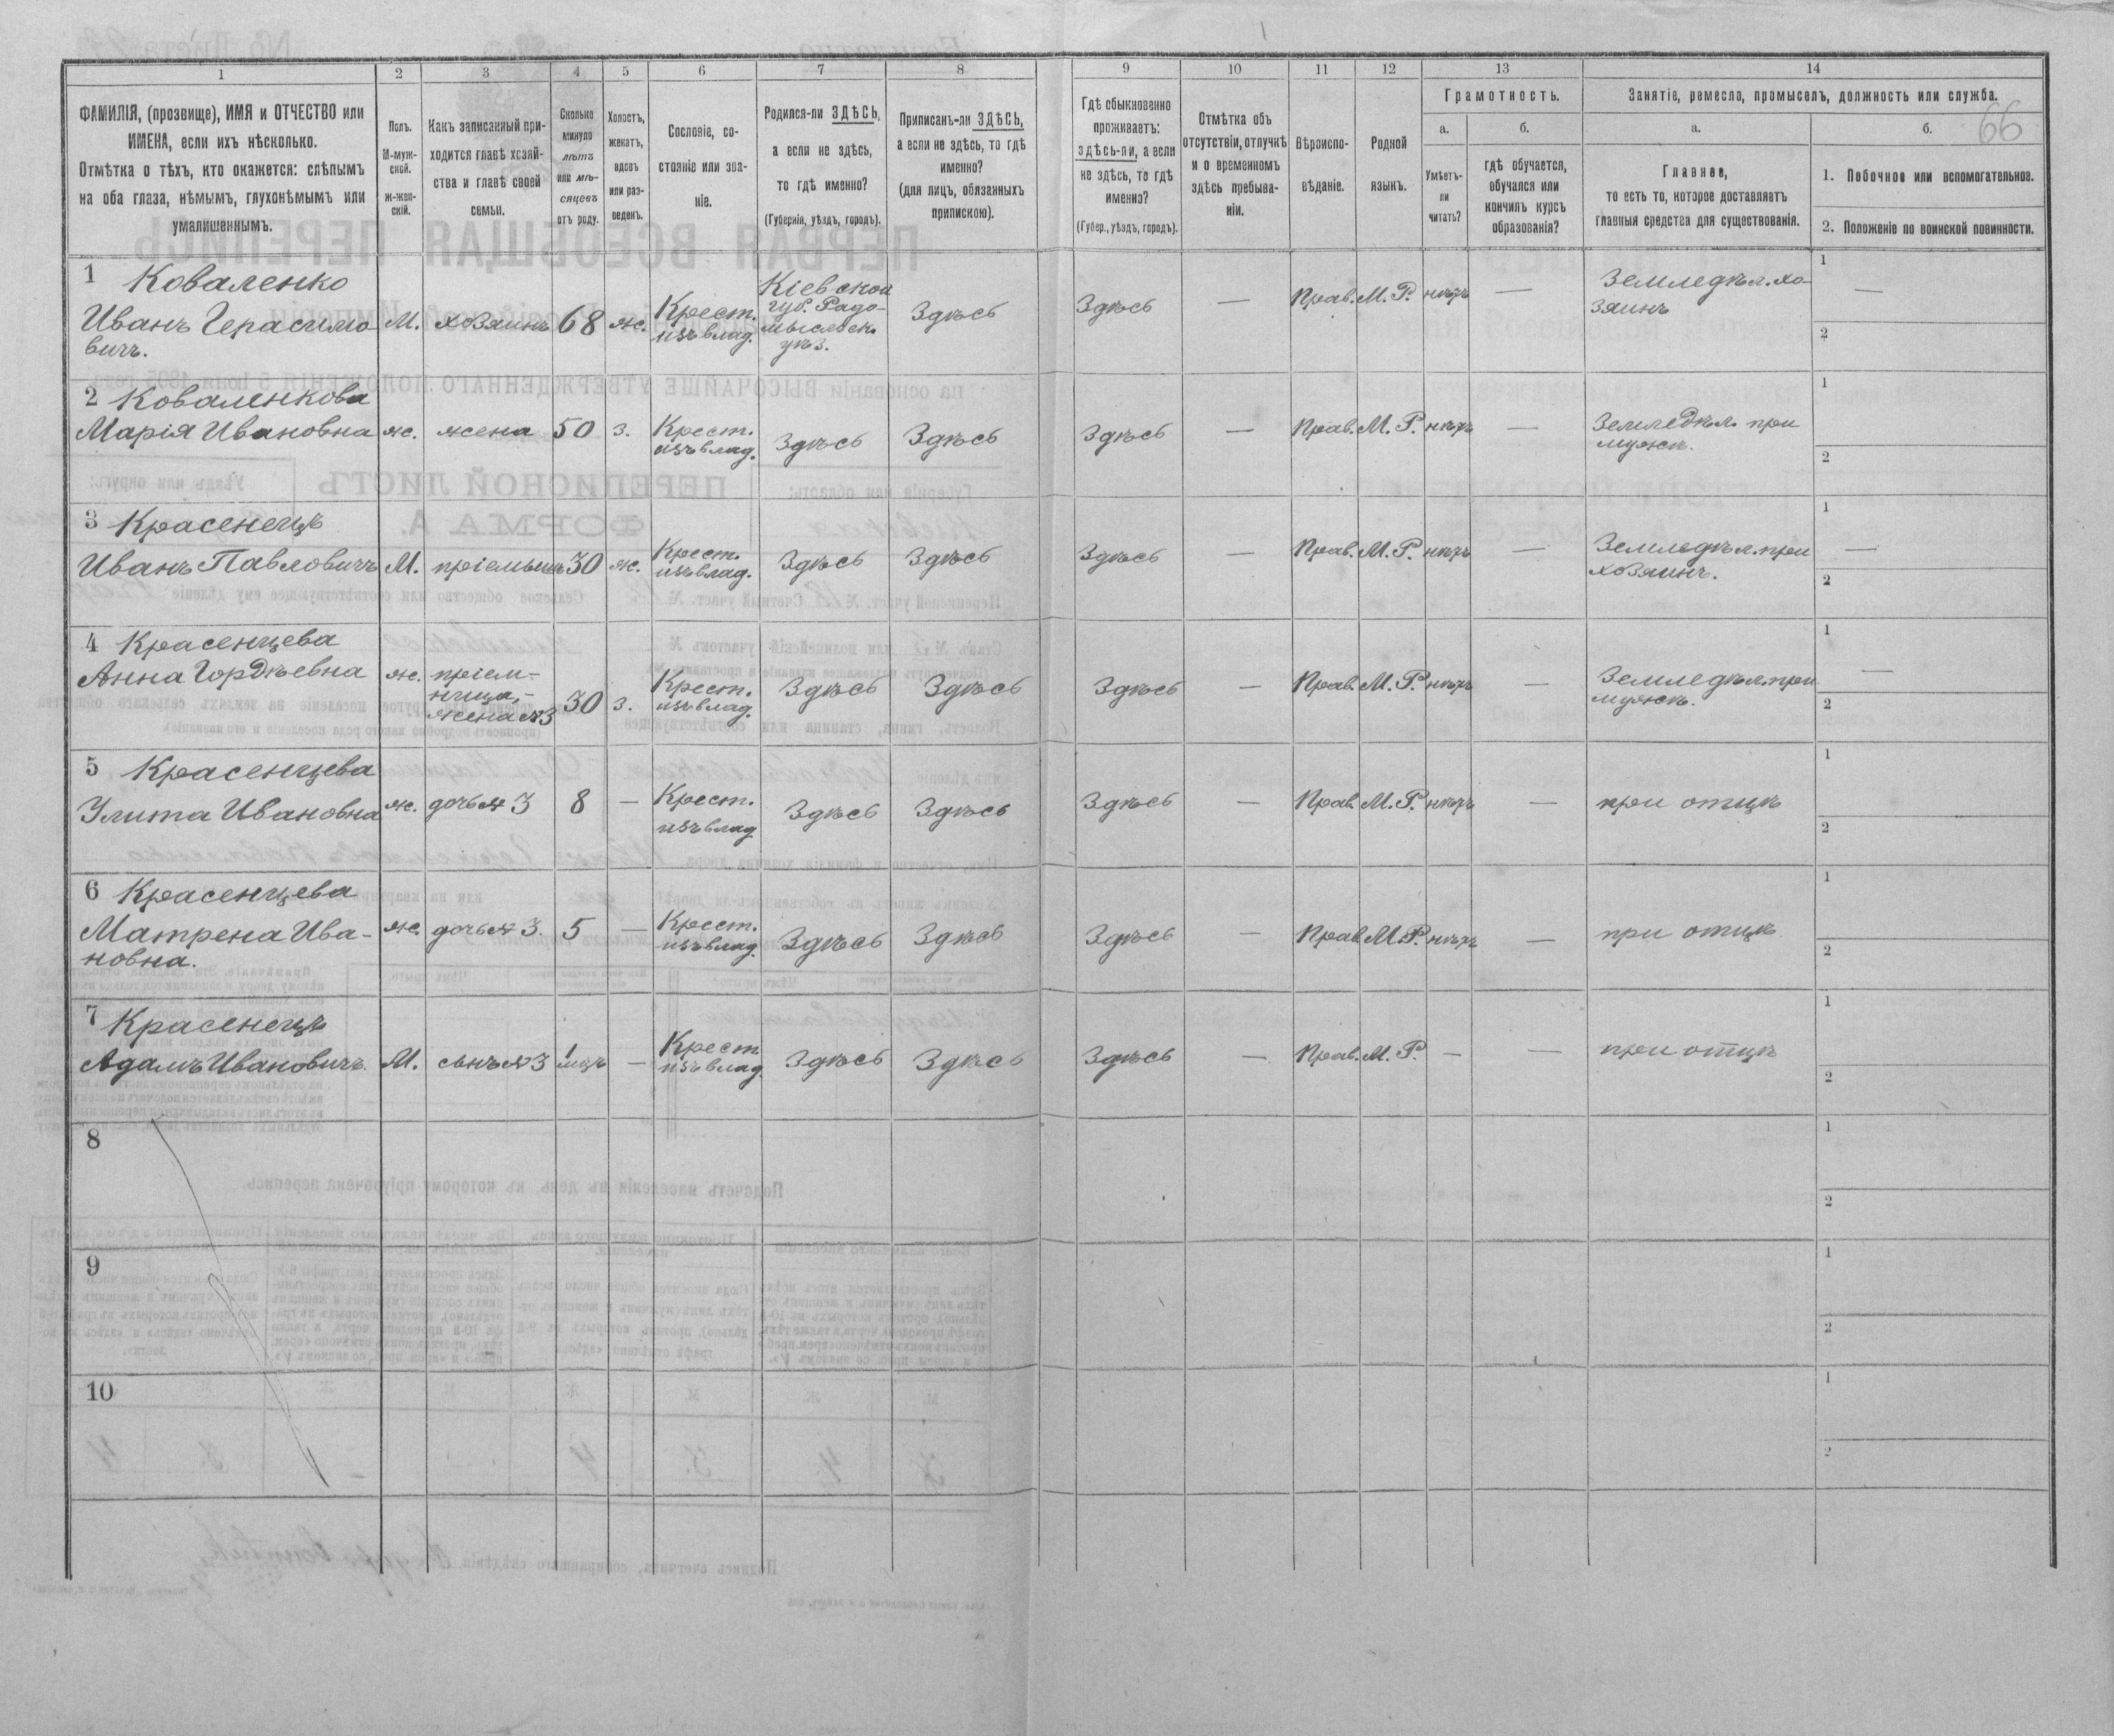 66
1 2 3 4 5 6 7 8 9 10 11 12 13 14
ФАМИЛІЯ, (прозвище), ИМЯ и ОТЧЕСТВО или
ИМЕНА, если ихъ нѣсколько.
Отмѣтка о тѣхъ, кто окажется: слѣпымъ
на оба глаза, нѣмымъ, глухонѣмымъ или
умалишеннымъ.
Полъ.
М-муж-
ской.
ж-жен-
скій.
Какъ записанный при-
ходится главѣ хозяй-
ства и главѣ своей
семьи.
Сколько
минуло
лѣтъ
или мѣ-
сяцевъ
отъ роду.
Холостъ,
женатъ,
вдовъ
или раз-
веденъ.
Сословіе, со-
стояніе или зва-
ніе.
Родился-ли ЗДѢСЬ,
а если не здѣсь,
то гдѣ именно?
(Губернія, уѣздъ, городъ).
Приписанъ-ли ЗДѢСЬ,
а если не здѣсь, то гдѣ
именно?
(для лицъ, обязанныхъ
припискою).
Гдѣ обыкновенно
проживаетъ:
здѣсь-ли, а если
не здѣсь, то гдѣ
именно?
(Губер., уѣздъ, городъ).
Отмѣтка объ
отсутствіи, отлучкѣ
и о временномъ
здѣсь пребыва-
ніи.
Вѣроиспо-
вѣданіе.
Родной
языкъ.
Грамотность.
а.
Умѣетъ-
ли
читать?
б.
гдѣ обучается,
обучался или
кончилъ курсъ
образованія?
Занятіе, ремесло, промыселъ, должность или служба.
а.
Главное,
то есть то, которое доставляетъ
главныя средства для существованія.
б.
1. Побочное или вспомогательное.
2. Положеніе по воинской повинности.
1 Коваленко
Иванъ Герасимо-
вичъ.
М. хозяинъ 68 ж.
Крест.
изъ влад.
Кіевской
губ. Радо-
мысльск.
уѣз.
Здѣсь Здѣсь — Прав. М. Р. нѣтъ —
Земледѣл. хо-
зяинъ
1 —
2
2 Коваленкова
Марія Ивановна ж. жена 50 з.
Крест.
изъ влад.
Здѣсь Здѣсь Здѣсь — Прав. М. Р. нѣтъ —
Земледѣл. при
мужѣ.
1
2
3 Красенецъ
Иванъ Павловичъ М. пріемышъ 30 ж.
Крест.
изъ влад.
Здѣсь Здѣсь Здѣсь — Прав. М. Р. нѣтъ —
Земледѣл. при
хозяинѣ.
1 —
2
4 Красенцева
Анна Гордѣевна ж.
пріем-
ница,-
жена №3
30 з.
Крест.
изъ влад.
Здѣсь Здѣсь Здѣсь — Прав. М. Р. нѣтъ —
Земледѣл. при
мужѣ.
1 —
2
5 Красенцева
Улита Ивановна ж. дочь № 3 8 —
Крест.
изъ влад.
Здѣсь Здѣсь Здѣсь — Прав. М. Р. нѣтъ — при отцѣ
1
2
6 Красенцева
Матрена Ива-
новна.
ж. дочь № 3. 5 —
Крест.
изъ влад.
Здѣсь Здѣсь Здѣсь — Прав. М. Р. нѣтъ — при отцѣ
1
2
7 Красенецъ
Адамъ Ивановичъ. М. сынъ №3
1
мцъ
—
Крест.
изъ влад.
Здѣсь Здѣсь Здѣсь — Прав. М. Р. — — при отцѣ
1
2
8
1
2
9
1
2
10
1
2